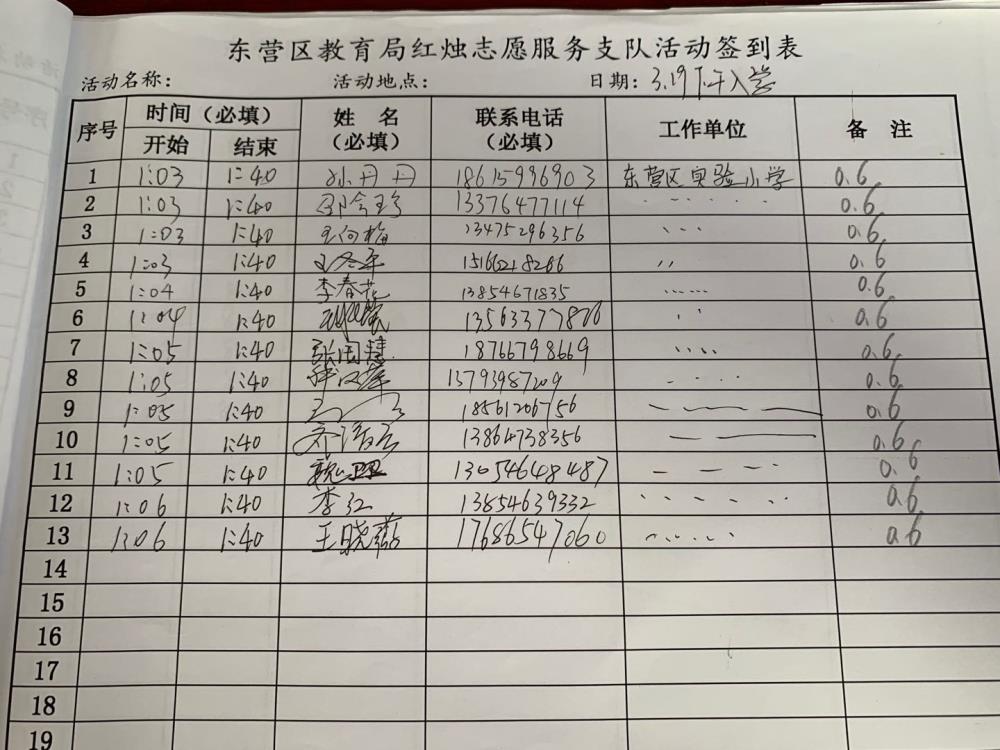 东营区教育局红烛志愿服务支队活动签到表
活动名称: 活动地点: 日期: 3.19下午入学
序号 时间(必填) 姓 名 (必填) 联系电话 (必填) 工作单位 备 注
开始 结束
1 1:03 1:40 孙丹丹 18615996903 东营区实验小学 0.6
2 1:03 1:40 13376477114 0.6
3 1:03 1:40 13475296356 0.6
4 1:03 1:40 15166218286 0.6
5 1:04 1:40 李春花 13854671835 0.6
6 1:04 1:40 0.6
7 1:05 1:40 18766798669 0.6
8 1:05 1:40 13793987209 0.6
9 1:05 1:40 18561206756 0.6
10 1:05 1:40 13864738356 0.6
11 1:05 1:40 13054648487 0.6
12 1:06 1:40 李红 13854639332 0.6
13 1:06 1:40 王晓燕 17686547060 0.6
14
15
16
17
18
19